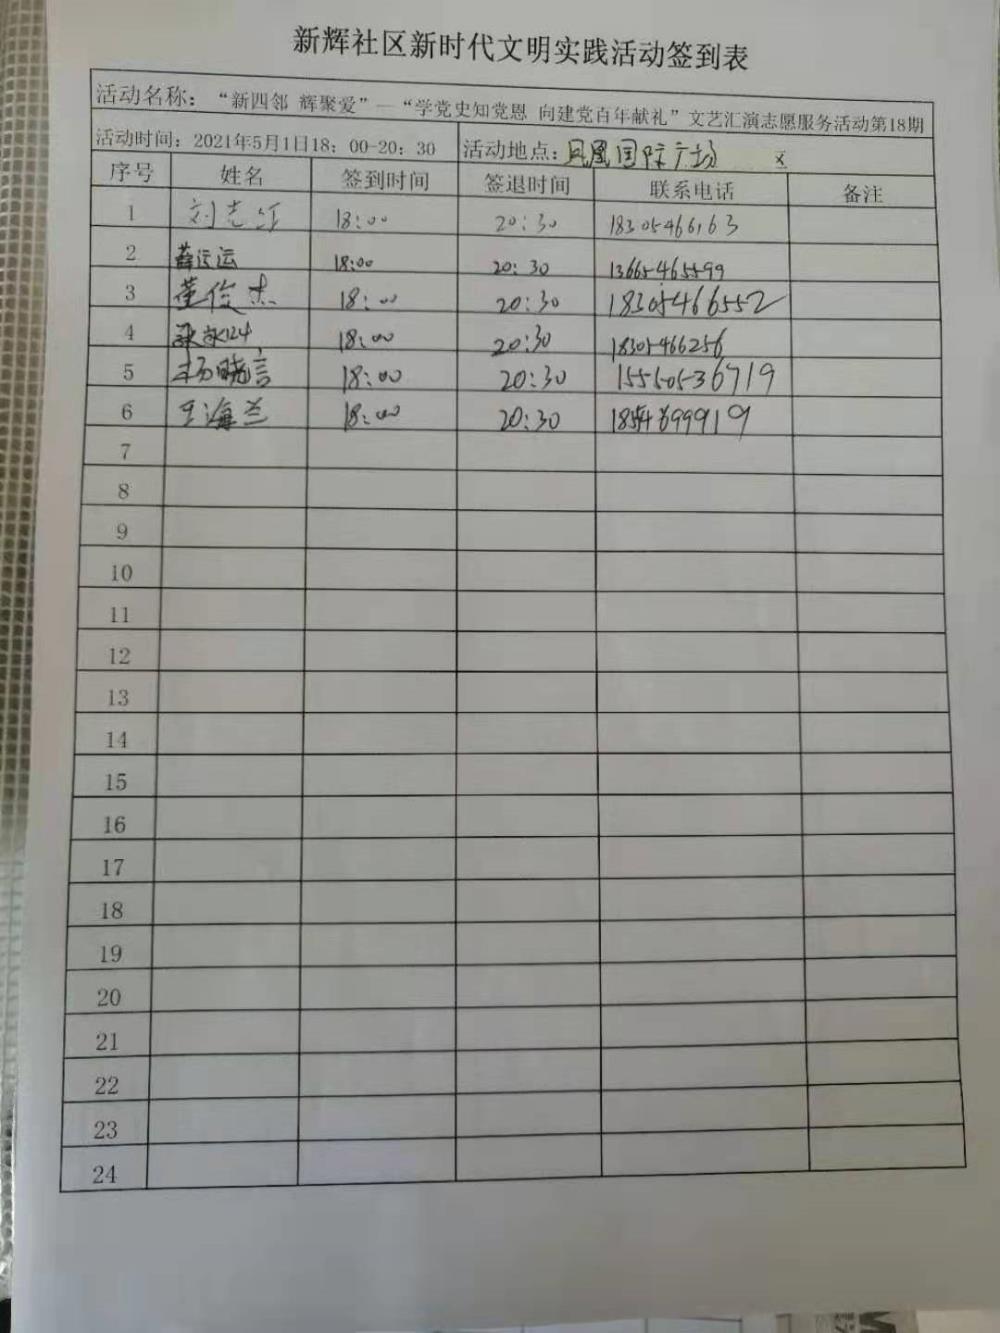 新辉社区新时代文明实践活动签到表
活动名称：“新四邻 辉聚爱”—“学党史知党恩 向建党百年献礼”文艺汇演志愿服务活动第18期
活动时间：2021年5月1日18：00-20：30 活动地点：凤凰国际广场
序号 姓名 签到时间 签退时间 联系电话 备注
1 刘志红 18:00 20:30 18305466163
2 薛运运 18:00 20:30 13665465599
3 董俊杰 18:00 20:30 18305466552
4 18:00 20:30 18305466256
5 杨晓言 18:00 20:30 15550536719
6 王海兰 18:00 20:30
7
8
9
10
11
12
13
14
15
16
17
18
19
20
21
22
23
24